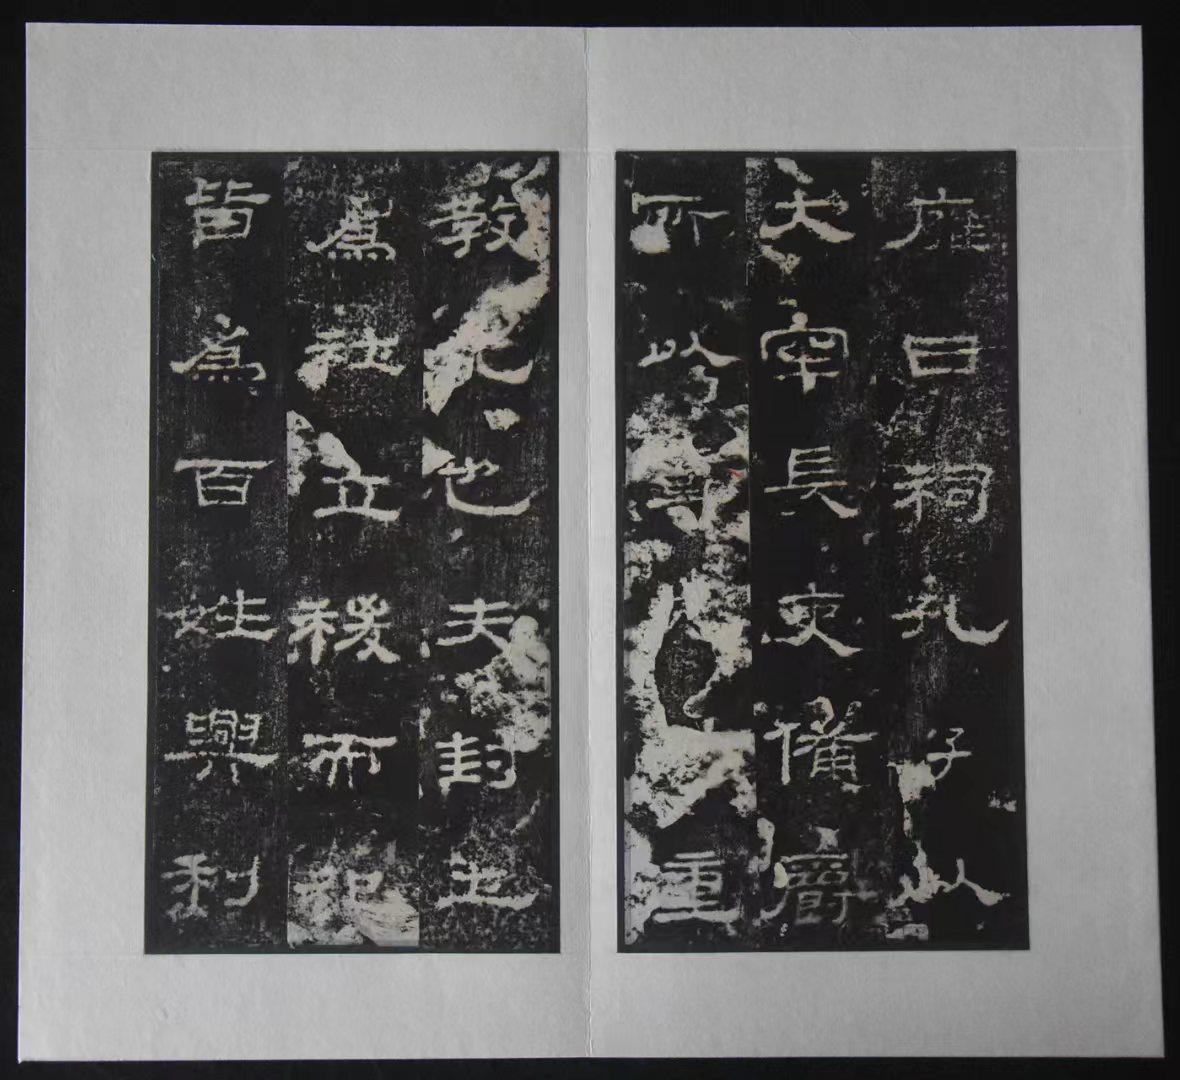 雍日祠孔子以
大牢長吏備爵
所以尊重
教化也夫封土
為社立稷而祀
皆為百姓興利